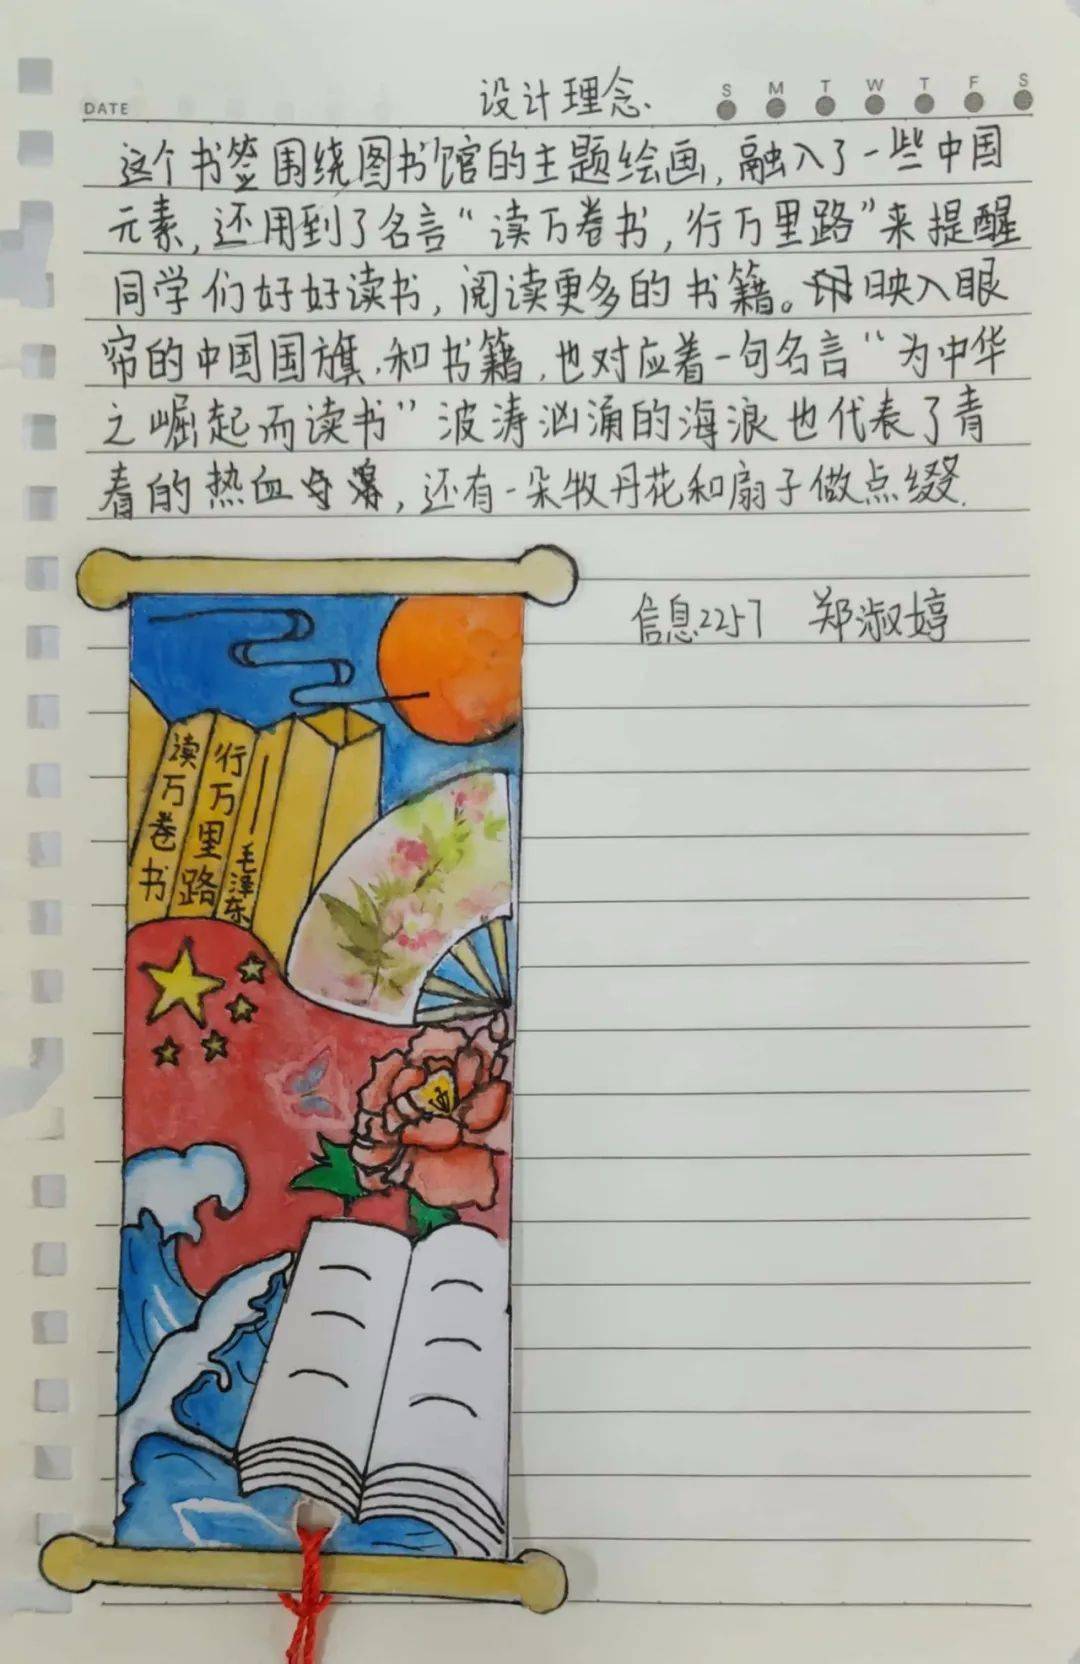 设计理念
DATE
S M T W T F S
这个书签围绕图书馆的主题绘画,融入了一些中国
元素,还用到了名言“读万卷书,行万里路”来提醒
同学们好好读书,阅读更多的书籍。映入眼
帘的中国国旗,和书籍,也对应着一句名言“为中华
之崛起而读书”波涛汹涌的海浪也代表了青
春的热血,还有一朵牧丹花和扇子做点缀.
信息2257 郑淑婷
读万卷书
行万里路
——毛泽东